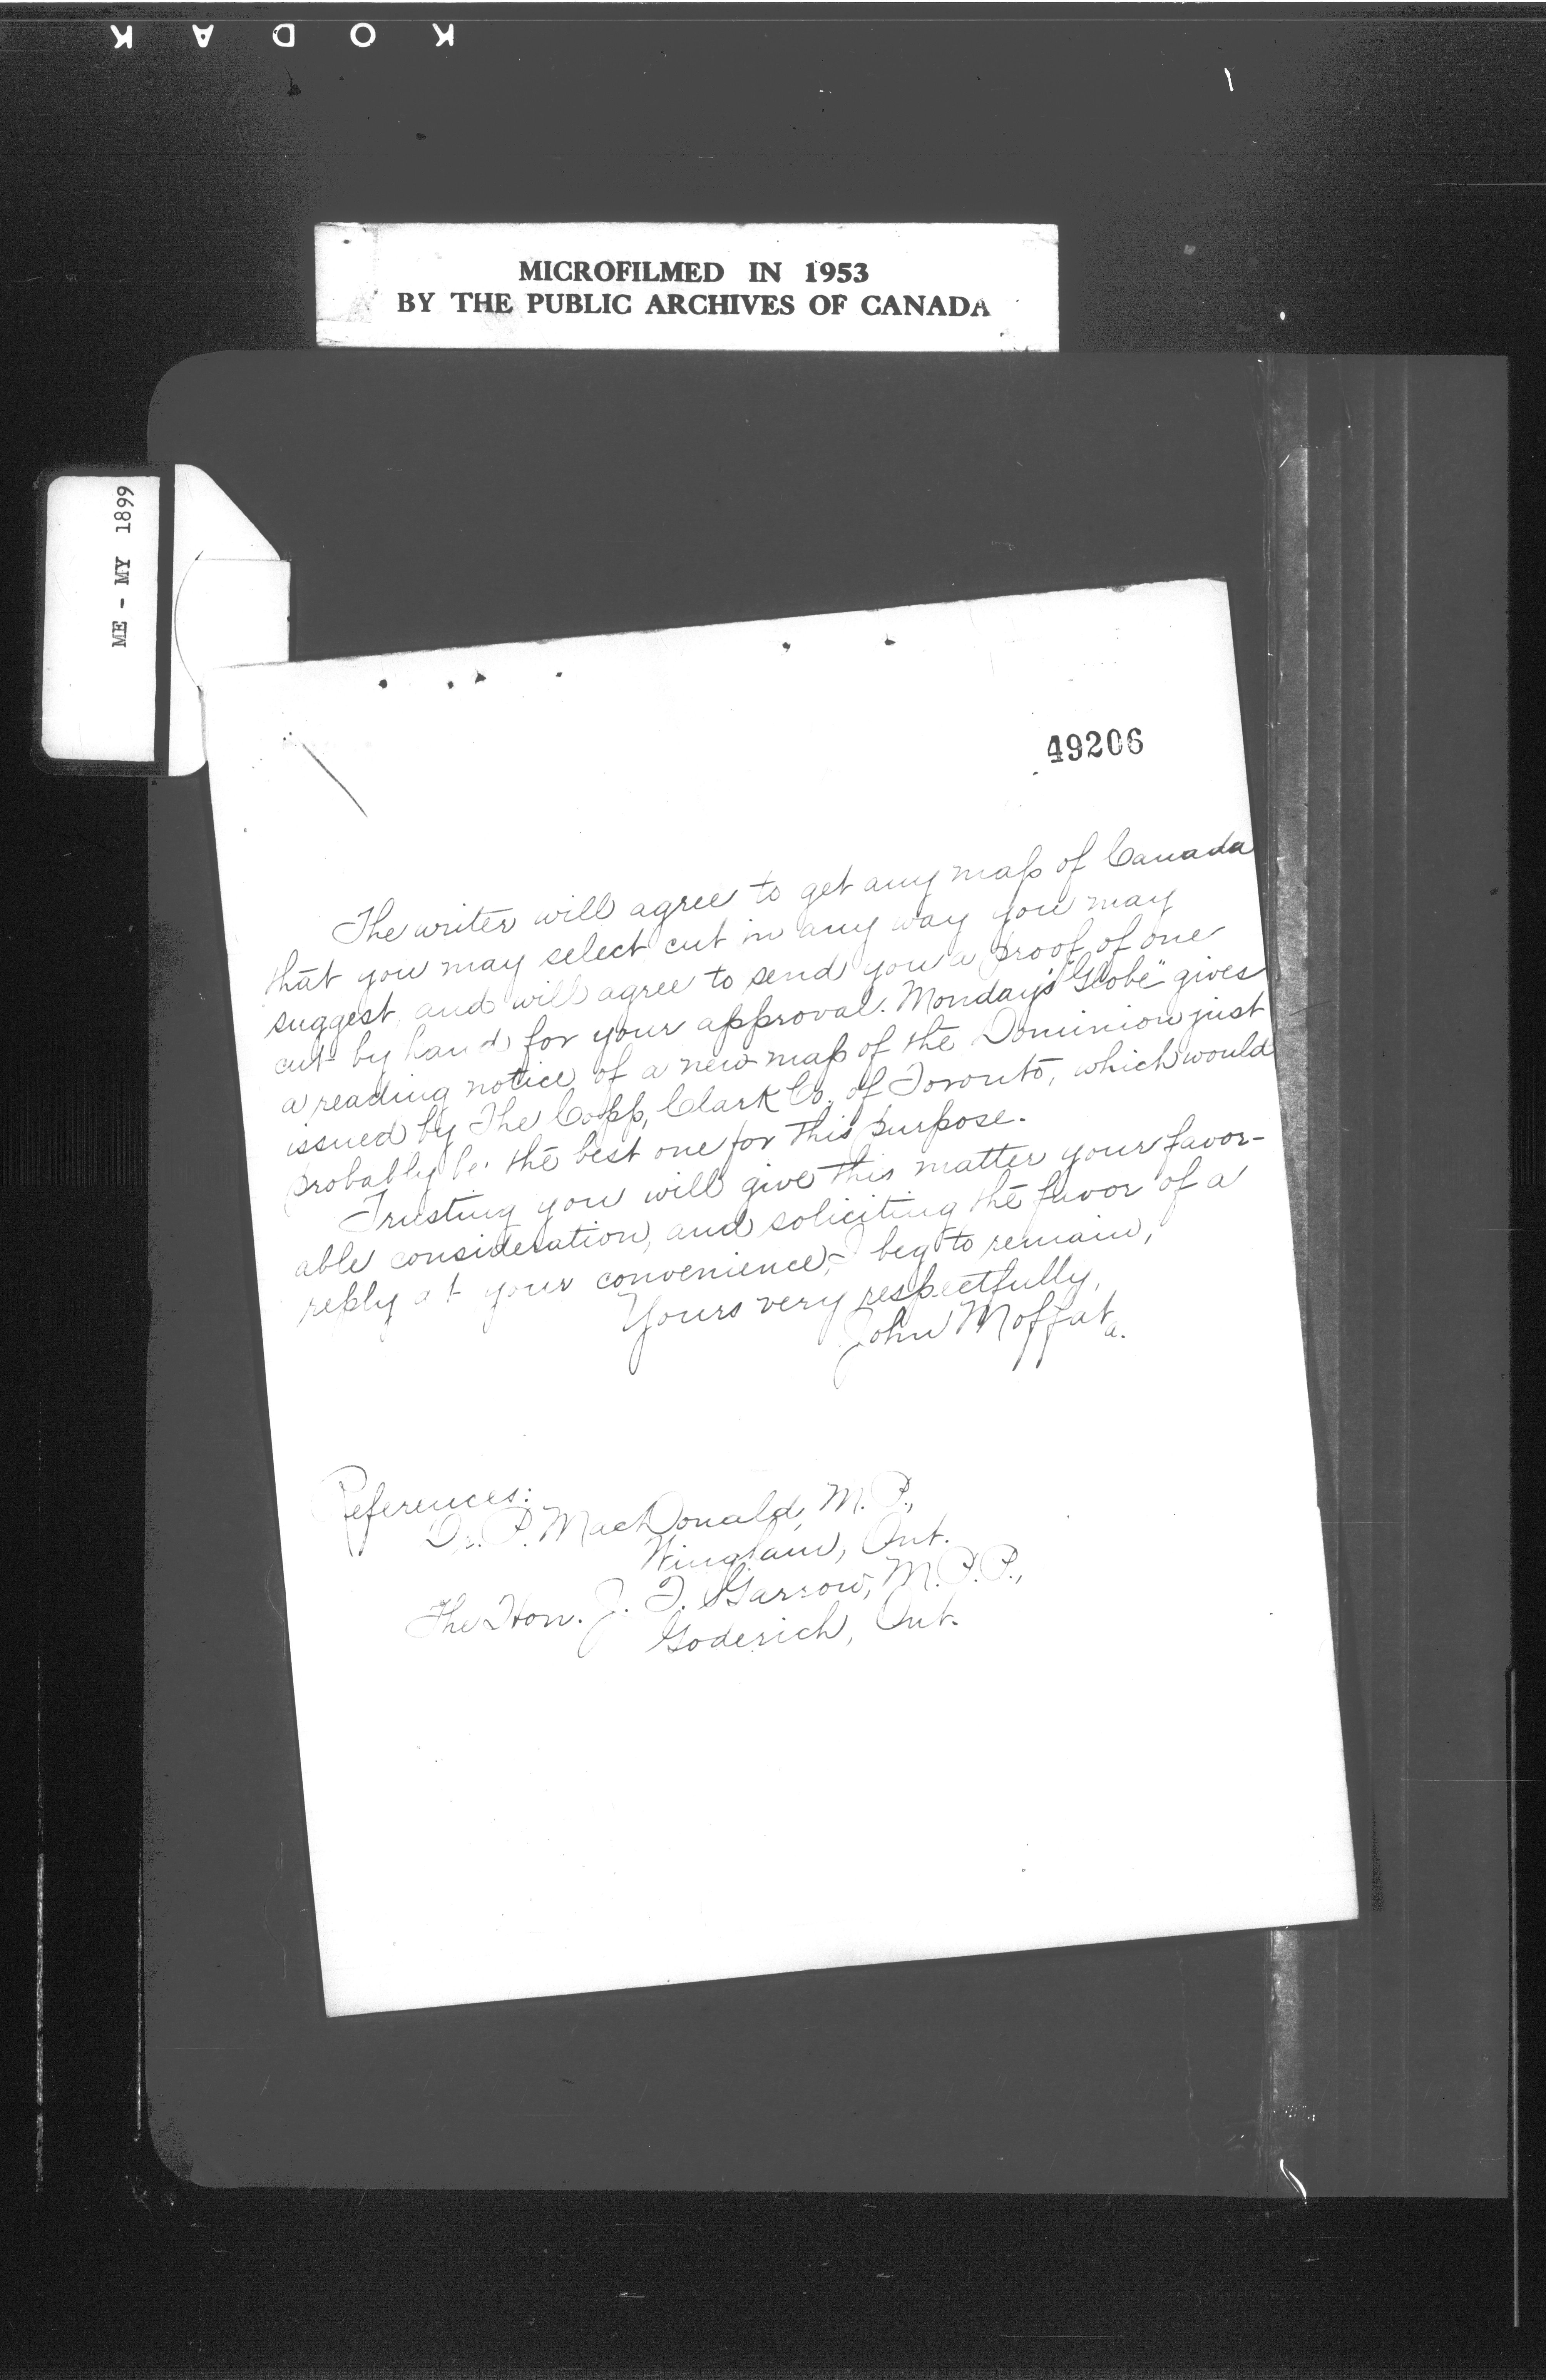 KODAK
MICROFILMED IN 1953
BY THE PUBLIC ARCHIVES OF CANADA
ME - MY 1899
49206
The writer will agree to get any map of Canada
that you may select cut in any way you may
suggest, and will agree to send you a proof of one
cut by hand for your approval. Monday's "Globe" gives
a reading notice of a new map of the Dominion just
issued by The Copp, Clark Co. of Toronto, which would
probably be the best one for this purpose.
Trusting you will give this matter your favor-
able consideration, and soliciting the favor of a
reply at your convenience, I beg to remain,
Yours very respectfully,
John Moffat
References:
Dr. P. MacDonald, M.P.,
Wingham, Ont.
The Hon. J. T. Garrow, M.P.P.,
Goderich, Ont.